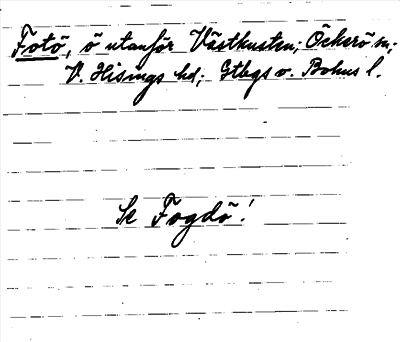 Fotö, ö utanför Västkusten; Öckerö sn;
V. Hisings hd; Gtbgs o. Bohus l.
Se Fogdö!